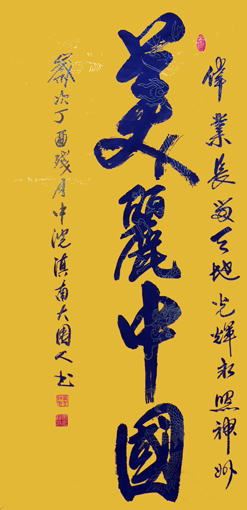 偉業長留天地光輝永照神州
美麗中國
歲次丁酉殘月中浣滇南大國人书